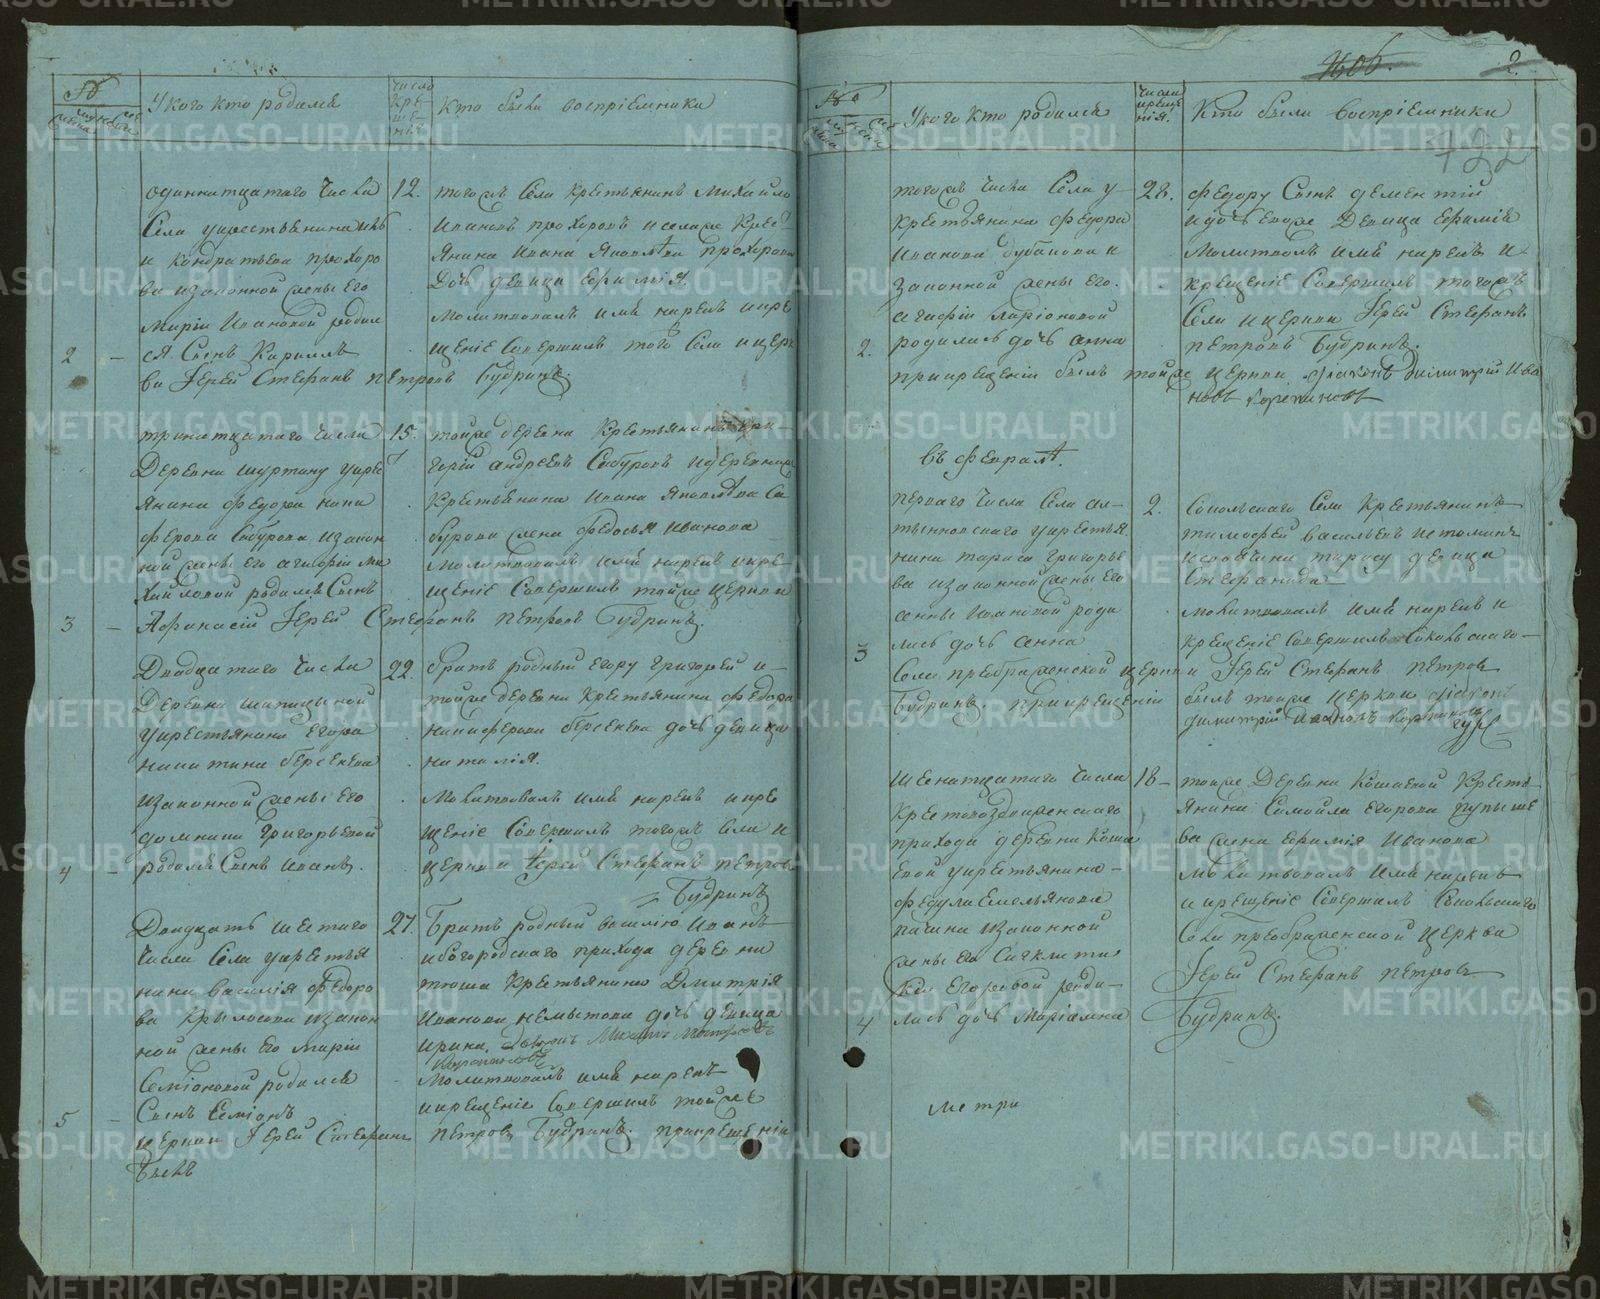 №
У кого кто родился
число крещения
Кто были воспріемники
одиннатцатаго Числа
Села укрестьянина
и кондратьева прохоро
ва изаконной жены Его
Маріи Ивановой родил
2
ся Сынъ Кириллъ
12.
тогожъ Села Крестьянинъ Михайло
Ивановъ прохоровъ итогоже Крест
янина Ивана Яковлева прохорова
Дочь девица Ефимія
Молитвовалъ имя нарекъ икре
щеніе Совершилъ того Села ицерк
ви Іерей Стефанъ петровъ Будринъ.
тринатцатаго Числа
Деревни шуртану укрес
янина Федора ники
ферова Сабурова изакон
ной жены Его агафіи ми
хайловой родился Сынъ
3
Афанасій
15.
тойже деревни Крестьянинъ гри
горій андреевъ Сабуровъ идеревниже
Крестьянина Ивана Яковлева Са
бурова жена Федосья Иванова
Молитвовалъ имя нарекъ икре
щеніе Совершилъ тойже церкви
Іерей Стефанъ петровъ Будринъ.
Двадцатаго Числа
Деревни шипицыной
укрестьянина Егора
никитина берсенева
изаконной жены Его
домники Григорьевой
4
родился Сынъ Иванъ.
22.
братъ родный Егору Григорей и
тойже деревни Крестьянина Федора
никиферова берсенева дочь девица
наталія.
Молитвовалъ имя нарекъ икре
щеніе Совершилъ тогожъ Села и
церкви Іерей Стефанъ петровъ
Будринъ
Двадцать шестаго
Числа Села укрестья
нина василія Федоро
ва Крылосова изакон
ной жены Его Маріи
Семіоновой родился
5
Сынъ Семіонъ
27.
Братъ родный василію Иванъ
ибогородскаго прихода деревни
тюша Крестьянина Дмитрія
Иванова немытова дочь девица
ирина.
Молитвовалъ имя нарекъ
икрещеніе Совершилъ тойже
церкви Іерей Стефанъ петровъ Будринъ. прикрещеніи
былъ
2.
722
У кого кто родился
Числа крещенія.
Кто были Воспріемники
тогожъ Числа Села у
Крестьянина Федора
Иванова дубакова и
законной жены Его
агафіи ларіоновой
2.
родилась дочь анна
28.
Федору Сынъ дементій
идочь Егоже Девица Ефимія
Молитвовалъ имя нарекъ и
крещеніе Совершилъ тогожъ
Села ицеркви Іерей Стефанъ
петровъ Будринъ.
прикрещеніи былъ тойже церкви діаконъ Димитрій Ива
новъ
въ Февралѣ.
перваго Числа Села ал-
тынновскаго укрестья
нина тараса Григорье
ва изаконной жены Его
анны Ивановой роди
лась дочь анна
3
2.
Сокольскаго Села Крестьянинъ
тимофей васильевъ истоминъ
тарасу девица
Стефанида
Молитвовалъ имя нарекъ и
крещеніе Совершилъ Сокольскаго
Села преображенской церкви Іерей Стефанъ петровъ
Будринъ. прикрещеніи былъ тойже церкви діаконъ
димитрій Ивановъ
шеснатцатаго Числа
Крестовоздвиженскаго
прихода деревни Коша
евой укрестьянина
Федула Емельянова
изаконной
жены Его Сигклити
кіи Егоровой роди
4
лась дочь Маріамна
18
тойже Деревни Кошаевой Кресть
янина Самойла Егорова
ва жена Ефимія Иванова
Молитвовалъ имя нарекъ
и крещеніе Совершилъ Сокольскаго
Села преображенской церкви
Іерей Стефанъ петровъ
Будринъ.
метри
METRIKI.GASO-URAL.RU